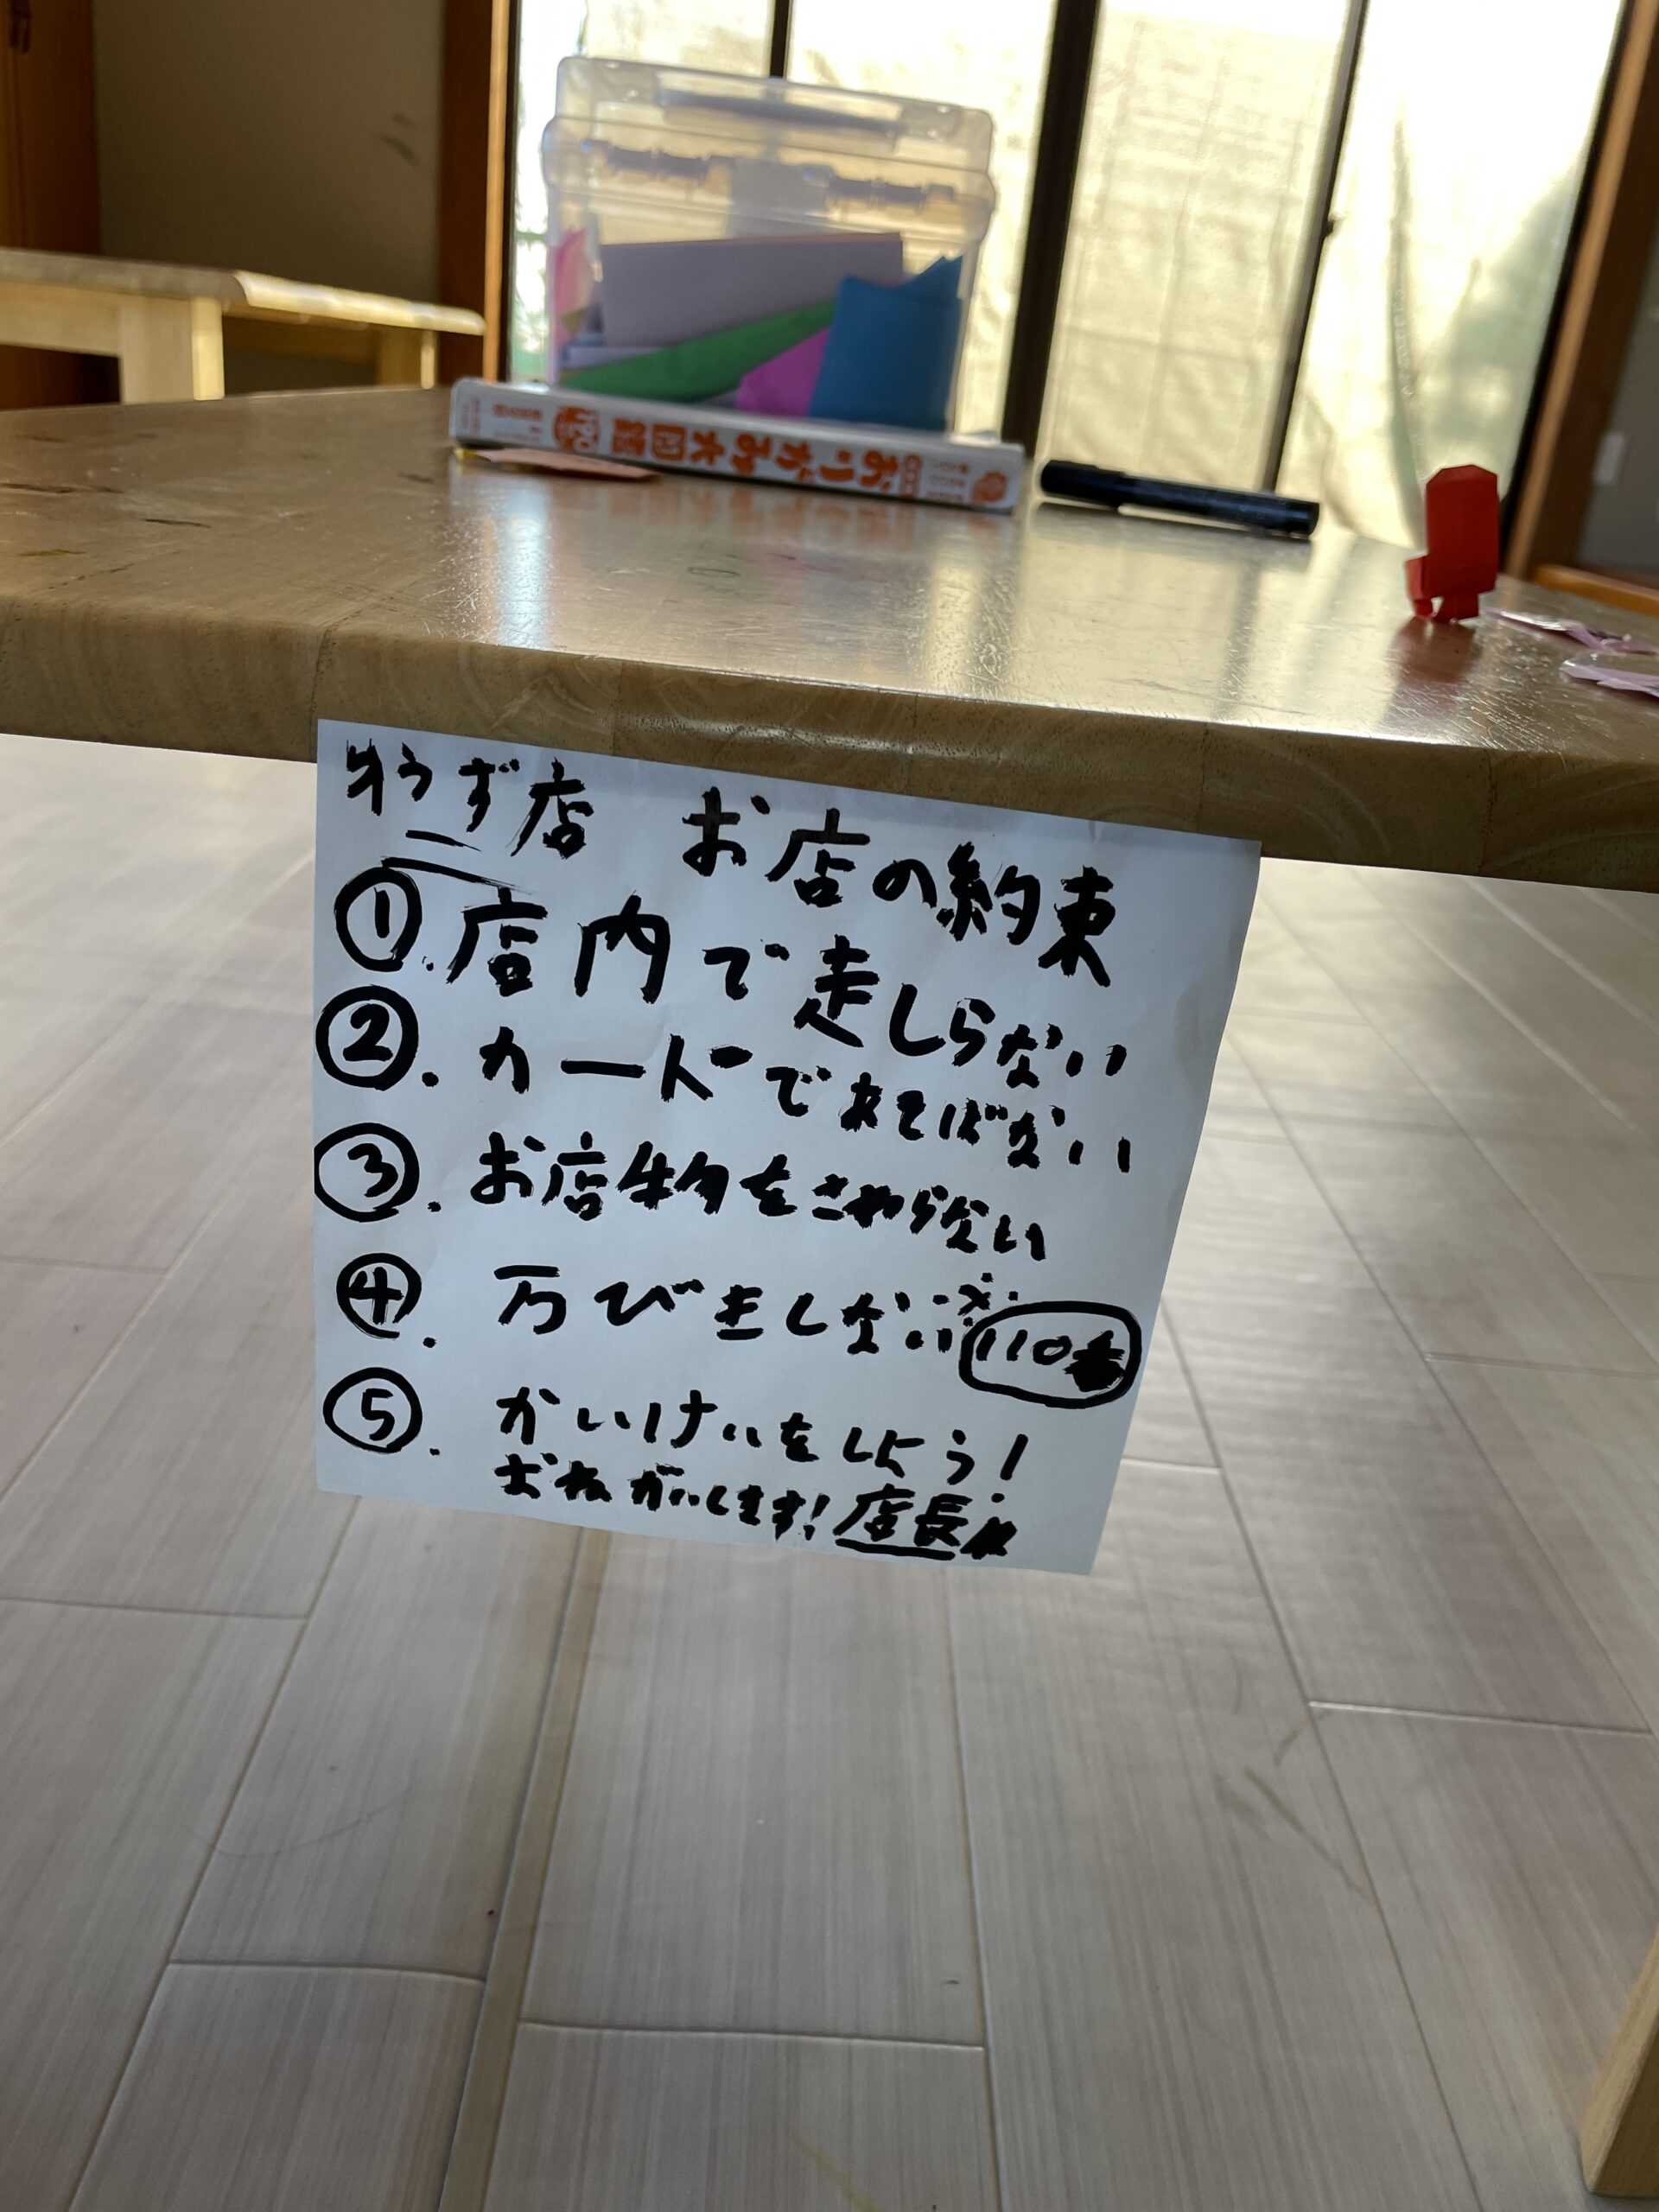 おりがみ大図鑑
ず店 お店の約束
①.店内で走しらない
②.カードであそばない
③.お店物をさわらない
④.万びきしない※110番
⑤.かいけいをしよう!
おねがいします!店長